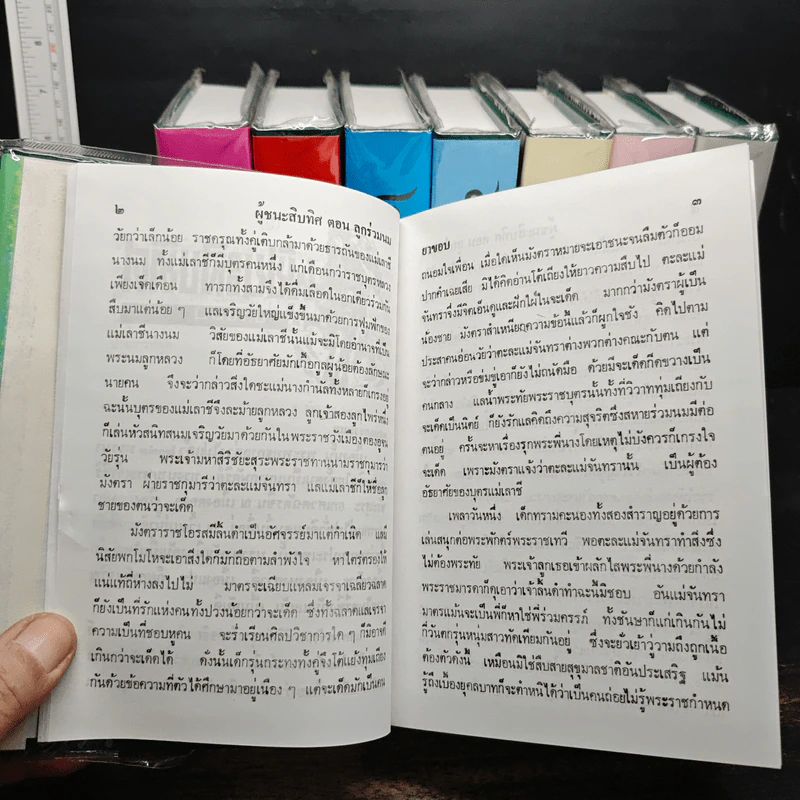 ๒
ผู้ชนะสิบทิศ ตอน ลูกร่วมนม
วัยกว่าเล็กน้อย ราชดรุณทั้งคู่เติบกล้ามาด้วยธารถันของแม่เลาชี
นางนม ทั้งแม่เลาชีก็มีบุตรคนหนึ่ง แก่เดือนกว่าราชบุตรหลวง
เพียงเจ็ดเดือน ทารกทั้งสามจึงได้ดื่มเลือดในอกเดียวร่วมกัน
สืบมาแต่น้อย ๆ แลเจริญวัยใหญ่แข็งขึ้นมาด้วยการฟูมฟักของ
แม่เลาชีนางนม วิสัยของแม่เลาชีนั้นแม้จะมีโดยอำนาจที่เป็น
พระนมลูกหลวง ก็โดยที่อัธยาศัยมักเกื้อกูลผู้น้อยต้องลักษณะ
นายคน จึงจะว่ากล่าวสิ่งใดชะแม่นางกำนัลทั้งหลายก็เกรงอยู่
ฉะนั้นบุตรของแม่เลาชีจึงละม้ายลูกหลวง ลูกเจ้าสองลูกไพร่หนึ่ง
ก็เล่นหัวสนิทสนมเจริญวัยมาด้วยกันในพระราชวังเมืองตองอูจน
วัยรุ่น พระเจ้ามหาสิริชัยะสุระพระราชทานนามราชกุมารว่า
มังตรา ฝ่ายราชกุมารีว่าตะละแม่จันทรา แลแม่เลาชีก็ให้ชื่อลูก
ชายของตนว่าจะเด็ด
มังตราราชโอรสมีลิ้นดำเป็นอัศจรรย์มาแต่กำเนิด แลมี
นิสัยพกโมโหจะเอาสิ่งใดก็มักถือตามลำพังใจ หาไตร่ตรองให้
แน่แท้ถี่ห่างลงไปไม่ มาตรจะเฉียบแหลมเจรจาเฉลียวฉลาด
ก็ยังเป็นที่รักแห่งคนทั้งปวงน้อยกว่าจะเด็ด ซึ่งทั้งฉลาดแลเจรจา
ความเป็นที่ชอบหูคน จะร่ำเรียนศิลปวิชาการใด ๆ ก็มิอาจดี
เกินกว่าจะเด็ดได้ ดังนั้นเด็กรุ่นกระทงทั้งคู่จึงโต้แย้งทุ่มเถียง
กันด้วยข้อความที่ตัวได้ศึกษามาอยู่เนือง ๆ แต่จะเด็ดมักเป็นคน
๓
ยาขอบ
ถนอมใจเพื่อน เมื่อใดเห็นมังตราหมายจะเอาชนะจนลืมตัวก็ออม
ปากคำเฉยเสีย มิได้คิดอ่านโต้เถียงให้ยาวความสืบไป ตะละแม่
จันทราจึ่งมีจิตเอ็นดูและฝักใฝ่ในจะเด็ด มากกว่ามังตราผู้เป็น
น้องชาย มังตราสำเหนียกความข้อนี้แล้วก็ผูกใจชัง คิดไปตาม
ประสาคนอ่อนวัยว่าตะละแม่จันทราต่างพวกต่างคณะกับตน แต่
จะว่ากล่าวหรือข่มขู่เอาก็ยังไม่ถนัดมือ ด้วยมีจะเด็ดกีดขวางเป็น
คนกลาง แลน้ำพระทัยพระราชบุตรนั้นทั้งที่วิวาททุ่มเถียงกับ
จะเด็ดเป็นนิตย์ ก็ยังรักแลคิดถึงความสุจริตซึ่งสหายร่วมนมมีต่อ
ตนอยู่ ครั้นจะหาเรื่องรุกพระพี่นางโดยเหตุไม่บังควรก็เกรงใจ
จะเด็ด เพราะมังตราแจ้งว่าตะละแม่จันทรานั้น เป็นผู้ต้อง
อัธยาศัยของบุตรแม่เลาชี
เพลาวันหนึ่ง เด็กทรามคะนองทั้งสองสำราญอยู่ด้วยการ
เล่นสนุกต่อพระพักตร์พระราชเทวี พอตะละแม่จันทราทำสิ่งซึ่ง
ไม่ต้องพระทัย พระเจ้าลูกเธอเข้าผลักไสพระพี่นางด้วยกำลัง
พระราชมารดาก็ดุเอาว่าเจ้าลิ้นดำทำฉะนี้มิชอบ อันแม่จันทรา
มาตรแม้นจะเป็นพี่ก็หาใช่พี่ร่วมครรภ์ ทั้งชันษาก็แก่เกินกันไม่
กี่วันตกรุ่นหนุ่มสาวทัดเทียมกันอยู่ ซึ่งจะยั่วเย้าวู่วามถึงถูกเนื้อ
ต้องตัวดังนี้ เหมือนมิใช่สืบสายสุขุมาลชาติอันประเสริฐ แม้น
รู้ถึงเบื้องยุคลบาทก็จะตำหนิได้ว่าเป็นคนถ่อยไม่รู้พระราชกำหนด